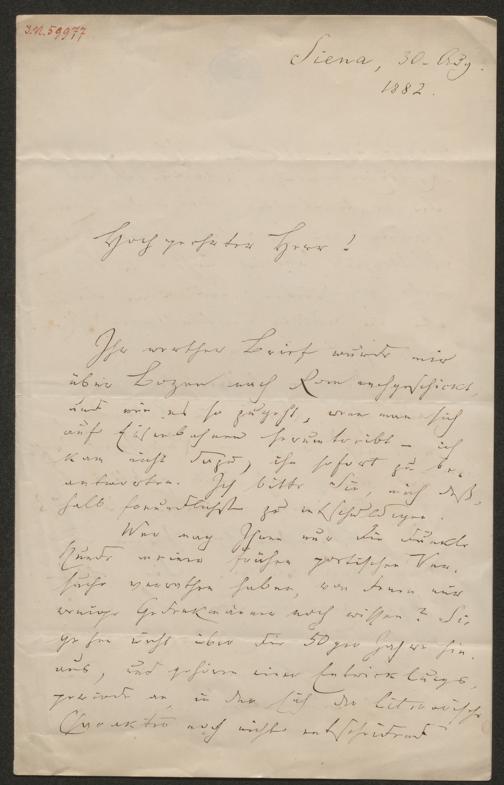 I.N. 59977
Siena, 30. Aug.
1882.
Hochgeehrter Herr!
Ihr werther Brief wurde mir
über Bozen nach Rom nachgeschickt,
und wie es so zugeht, wenn man sich
auf Eisenbahnen herumtreibt – ich
kam nicht dazu, ihn sofort zu be-
antworten. Ich bitte Sie, mich deß-
halb freundlichst zu entschuldigen.
Wer mag Ihnen nur die dunkle
Kunde meiner frühen poetischen Ver-
suche verrathen haben, von denen nur
wenige Gedenkmänner noch wissen? Sie
gehen nicht über die 50ger Jahre hin-
aus, und gehören einer Entwicklungs-
periode an, in der sich der literarische
Charakter noch nicht entschieden